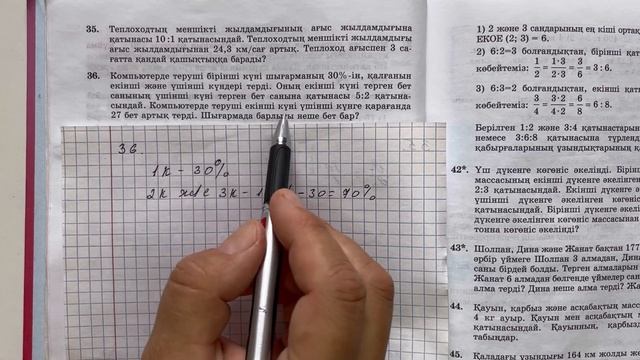 35. Теплоходтың меншікті жылдамдығының ағыс жылдамдығына
қатынасы 10:1 қатынасындай. Теплоходтың меншікті жылдамдығы
ағыс жылдамдығынан 24,3 км/сағ артық. Теплоход ағыспен 3 са-
ғатта қандай қашықтыққа барады?
36. Компьютерде теруші бірінші күні шығарманың 30%-ін, қалғанын
екінші және үшінші күндері терді. Оның екінші күні терген бет
санының үшінші күні терген бет санына қатынасы 5:2 қатына-
сындай. Компьютерде теруші екінші күні үшінші күнге қарағанда
27 бет артық терді. Шығармада барлығы неше бет бар?
36.
1к - 30%
2к және 3к - 1 -30=70%
1) 2 және 3 сандарының ең кіші ортақ
ЕКОЕ (2; 3) = 6.
2) 6:2=3 болғандықтан, бірінші қаты
көбейтеміз: 1/2 = 1·3/2·3 = 3/6 = 3 : 6.
3) 6:3=2 болғандықтан, екінші
көбейтеміз: 3/4 = 3·2/4·2 = 6/8 = 6 : 8.
Берілген 1:2 және 3:4 қатынастары
немесе 3:6:8 қатынасына түрленд
қабырғаларының ұзындықтарының қа
42*. Үш дүкенге көгөніс әкелінді. Бірінші
массасының екінші дүкенге әкелінген
2:3 қатынасындай. Екінші дүкенге ә
үшінші дүкенге әкелінген көгөніс
қатынасындай. Бірінші дүкенге әкелін
дүкенге әкелінген көгөніс массасынан
тонна көгөніс әкелінді?
43*. Шолпан, Дина және Жанат бақтан 177
әрбір үймеге Шолпан 3 алмадан, Дина
саны бірдей болды. Терген алмаларын
Жанат 6 алмадан бөлгенде үймелер сан
алма терді? Дина неше алма терді? Жа
44. Қауын, қарбыз және асқабақтың масса
4 кг ауыр. Қауын мен асқабақтың м
қатынасындай. Қауынның, қарбыз
табыңдар.
45. Қаладағы ұзындығы 164 км жолды ж